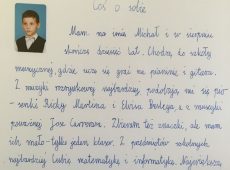 Coś o sobie
Mam na imię Michał i w sierpniu
skończę dziewięć lat. Chodzę do szkoły
muzycznej, gdzie uczę się grać na pianinie i gitarze.
Z muzyki rozrywkowej najbardziej podobają mi się pio-
senki Ricky Martina i Elvisa Presleya, a z muzyki
poważnej Jose Carreras. Zbieram też znaczki, ale mam
ich mało - tylko jeden klaser. Z przedmiotów szkolnych
najbardziej lubię matematykę i informatykę. Największą